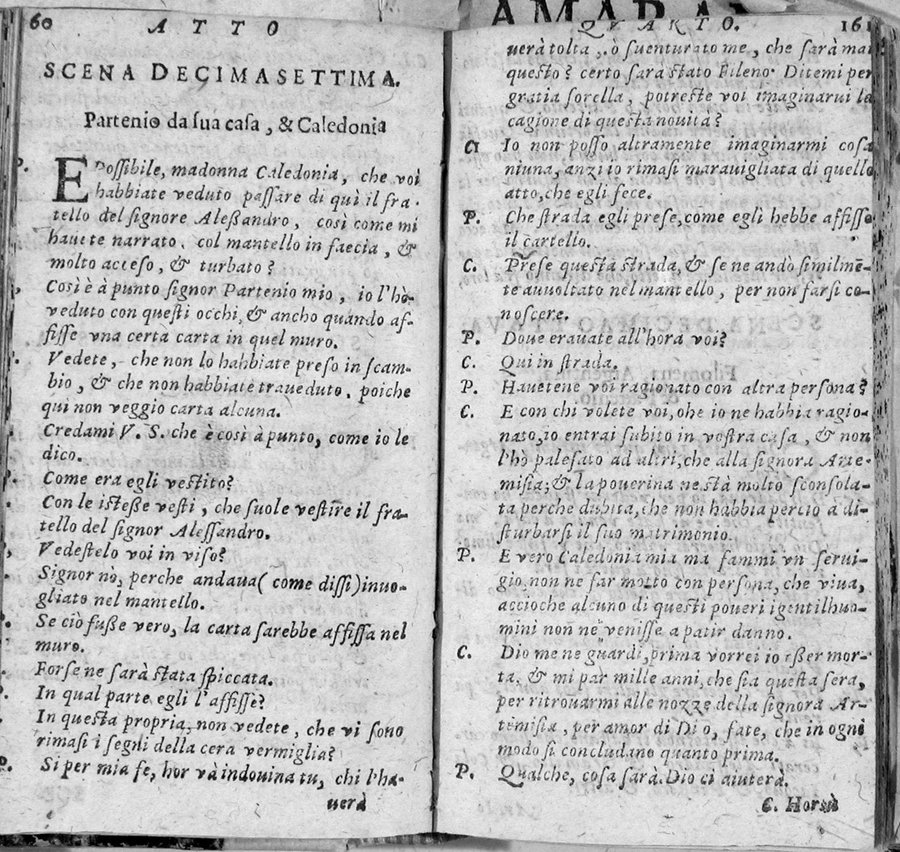 60 ATTO
SCENA DECIMASETTIMA.
Partenio da sua casa, & Caledonia
P. E Possibile, madonna Caledonia, che voi
habbiate veduto passare di quì il fra-
tello del signore Aleßandro, così come mi
hauete narrato. col mantello in faecia, &
molto acceso, & turbato?
Così è à punto signor Partenio mio, io l'hò
veduto con questi occhi, & ancho quãdo af-
fisse vna certa carta in quel muro.
Vedete, che non lo habbiate preso in scam-
bio, & che non habbiate traueduto. poiche
quì non veggio carta alcuna.
Credami V. S. che è così à punto, come io le
dico.
Come era egli vestito?
Con le isteße vesti, che suole vestire il fra-
tello del signor Alessandro.
Vedestelo voi in viso?
Signor nò, perche andaua (come dissi) inuo-
gliato nel mantello.
Se ciò fuße vero, la carta sarebbe affissa nel
muro.
Forse ne sarà stata spiccata.
In qual parte egli l'affisse?
In questa propria, non vedete, che vi sono
rimasi i segni della cera vermiglia?
Si per mia fe, hor và indouina tu, chi l'ha-
uerà
QVARTO. 161
uerà tolta, ò suenturato me, che sarà mai
questo? certo sarà stato Fileno. Ditemi per
gratia sorella, potreste voi imaginarui la
cagione di questa nouità?
C. Io non posso altramente imaginarmi cosa
niuna, anzi io rimasi marauigliata di quello
atto, che egli fece.
P. Che strada egli prese, come egli hebbe affisso
il cartello.
C. Prese questa strada, & se ne andò similmẽ-
te auuoltato nel mantello, per non farsi co-
noscere.
P. Doue erauate all'hora voi?
C. Qui in strada.
P. Hauetene voi ragionato con altra persona?
C. E con chi volete voi, ohe io ne habbia ragio-
nato, io entrai subito in vostra casa, & non
l'hò palesato ad altri, che alla signora Arte-
misia; & la pouerina ne stà molto sconsola-
ta perche dubita, che non habbia perciò a di-
sturbarsi il suo matrimonio.
P. E vero Caledonia mia ma fammi vn serui-
gio, non ne far motto con persona, che viua,
accioche alcuno di questi poueri igentilhuo-
mini non ne venisse a patir danno.
C. Dio me ne guardi, prima vorrei io eßer mor-
ta, & mi par mille anni, che sia questa sera,
per ritrouarmi alle nozze della signora Ar-
temisia, per amor di Dio, fate, che in ogni
modo si concludano quanto prima.
P. Qualche, cosa sarà. Dio ci aiuterà.
C. Horsù